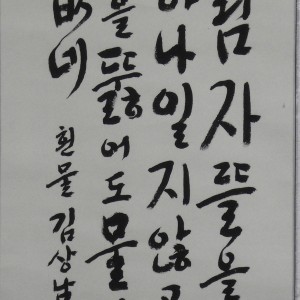 림자 뜰을
나 일지 않고
을 뚫어도 물
없네
흰물 김상